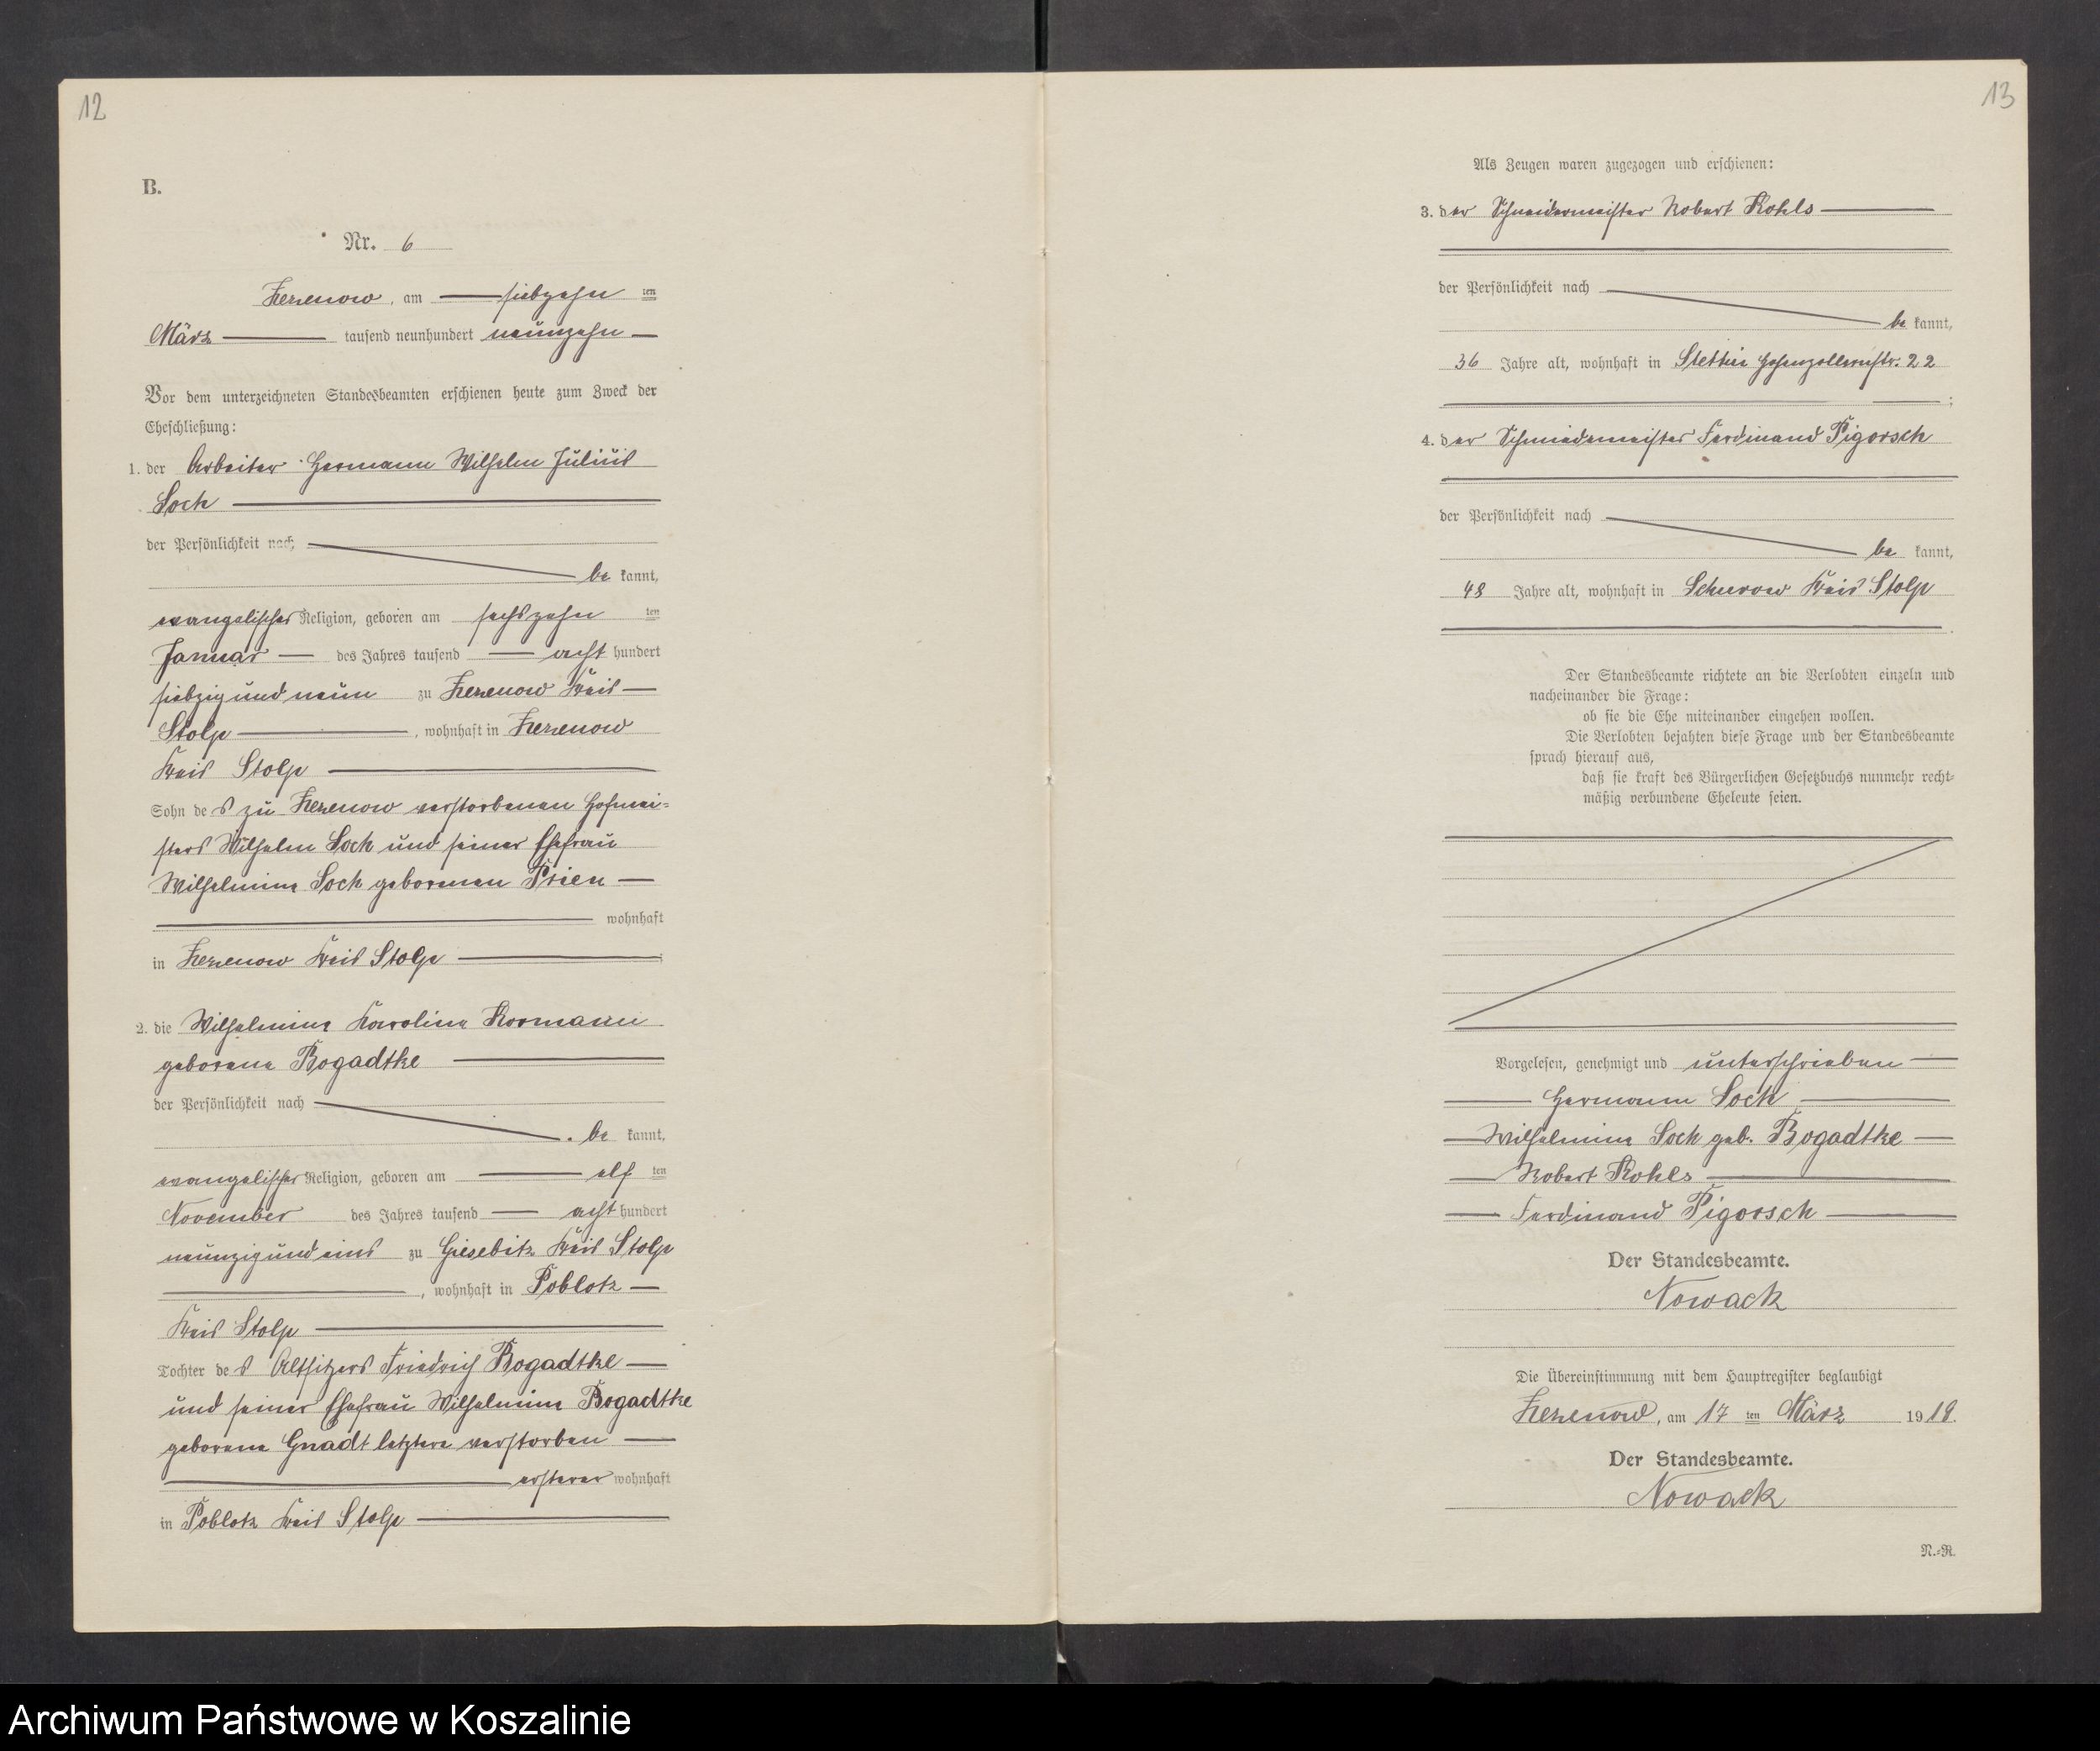 12
B.
Nr. 6
Zezenow, am — siebzehn ten
März — tausend neunhundert neunzehn —
Vor dem unterzeichneten Standesbeamten erschienen heute zum Zweck der
Eheschließung:
1. der Arbeiter Hermann Wilhelm Julius
Sock —
der Persönlichkeit nach —
be kannt,
evangelischer Religion, geboren am sechszehn ten
Januar — des Jahres tausend — acht hundert
siebzig und neun zu Zezenow Kreis —
Stolp —, wohnhaft in Zezenow
Kreis Stolp —
Sohn des zu Zezenow verstorbenen Hofmei=
sters Wilhelm Sock und seiner Ehefrau
Wilhelmine Sock geborenen Prien —
— wohnhaft
in Zezenow Kreis Stolp —
2. die Wilhelmine Karoline Kormann
geborene Bogadtke —
der Persönlichkeit nach —
be kannt,
evangelischer Religion, geboren am — elf ten
November des Jahres tausend — acht hundert
neunzig und eins zu Giesebitz Kreis Stolp
—, wohnhaft in Poblotz —
Kreis Stolp —
Tochter des Altsitzers Friedrich Bogadtke —
und seiner Ehefrau Wilhelmine Bogadtke
geborene Gnadt letztere verstorben —
— ersterer wohnhaft
in Poblotz Kreis Stolp —
13
Als Zeugen waren zugezogen und erschienen:
3. der Schneidermeister Robert Kohls —
der Persönlichkeit nach —
be kannt,
36 Jahre alt, wohnhaft in Stettin Hohenzollernstr. 22
— ;
4. der Schmiedemeister Ferdinand Pigorsch
der Persönlichkeit nach —
be kannt,
48 Jahre alt, wohnhaft in Schurow Kreis Stolp
— .
Der Standesbeamte richtete an die Verlobten einzeln und
nacheinander die Frage:
ob sie die Ehe miteinander eingehen wollen.
Die Verlobten bejahten diese Frage und der Standesbeamte
sprach hierauf aus,
daß sie kraft des Bürgerlichen Gesetzbuchs nunmehr recht=
mäßig verbundene Eheleute seien.
Vorgelesen, genehmigt und unterschrieben —
— Hermann Sock —
— Wilhelmine Sock geb. Bogadtke —
— Robert Kohls —
— Ferdinand Pigorsch —
Der Standesbeamte.
Nowack
Die Übereinstimmung mit dem Hauptregister beglaubigt
Zezenow, am 17 ten März 1919.
Der Standesbeamte.
Nowack
N.=R.
Archiwum Państwowe w Koszalinie